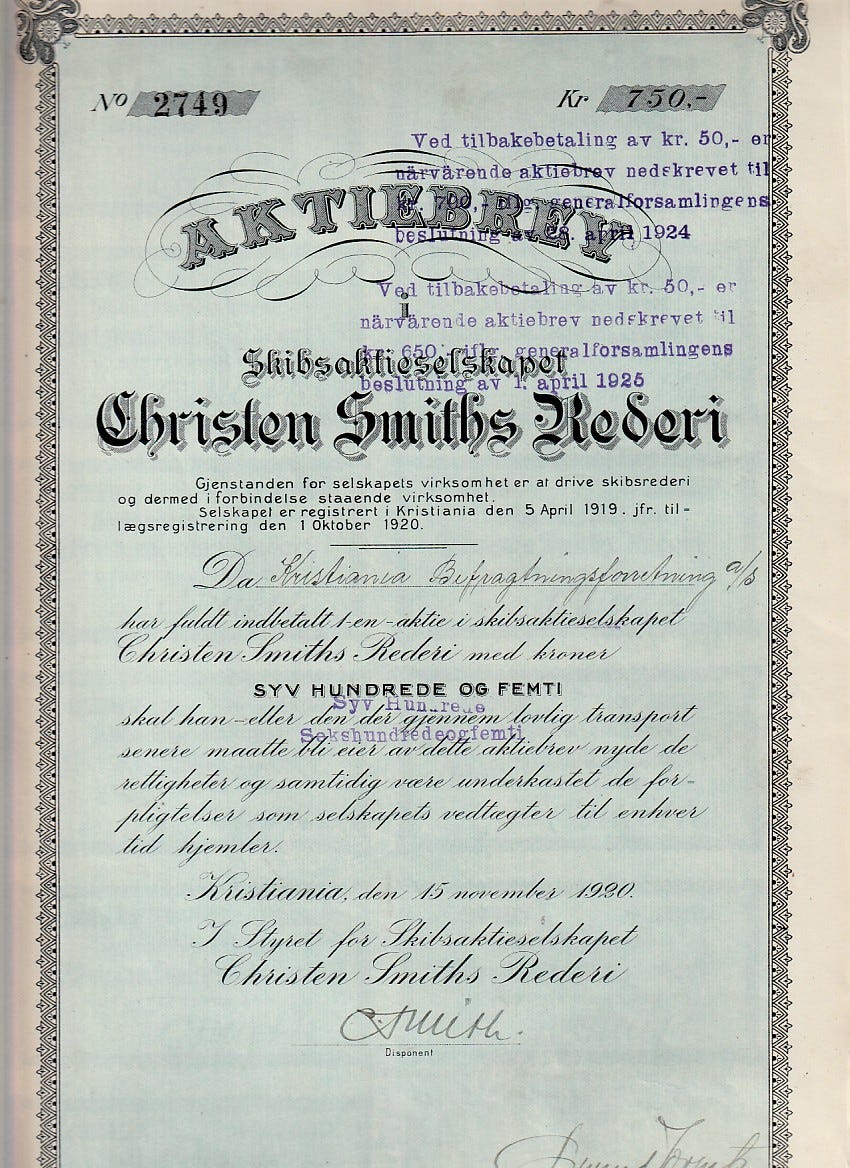 No 2749
Kr 750,-
Ved tilbakebetaling av kr. 50,- er
närvärende aktiebrev nedskrevet til
kr. 700,- iflg. generalforsamlingens
beslutning av 28. april 1924
AKTIEBREV
Ved tilbakebetaling av kr. 50,- er
närvärende aktiebrev nedskrevet til
kr. 650,- iflg. generalforsamlingens
beslutning av 1. april 1925
i
Skibsaktieselskapet
Christen Smiths Rederi
Gjenstanden for selskapets virksomhet er at drive skibsrederi
og dermed i forbindelse staaende virksomhet.
Selskapet er registrert i Kristiania den 5 April 1919. jfr. til-
lægsregistrering den 1 Oktober 1920.
Da Kristiania Befragtningsforretning a/s
har fuldt indbetalt 1-en-aktie i skibsaktieselskapet
Christen Smiths Rederi med kroner
SYV HUNDREDE OG FEMTI
Syv Hundrede
skal han-eller den der gjennem lovlig transport
Sekshundredeogfemti
senere maatte bli eier av dette aktiebrev nyde de
rettigheter og samtidig være underkastet de for-
pligtelser som selskapets vedtægter til enhver
tid hjemler.
Kristiania, den 15 november 1920.
I Styret for Skibsaktieselskapet
Christen Smiths Rederi
C Smith.
Disponent